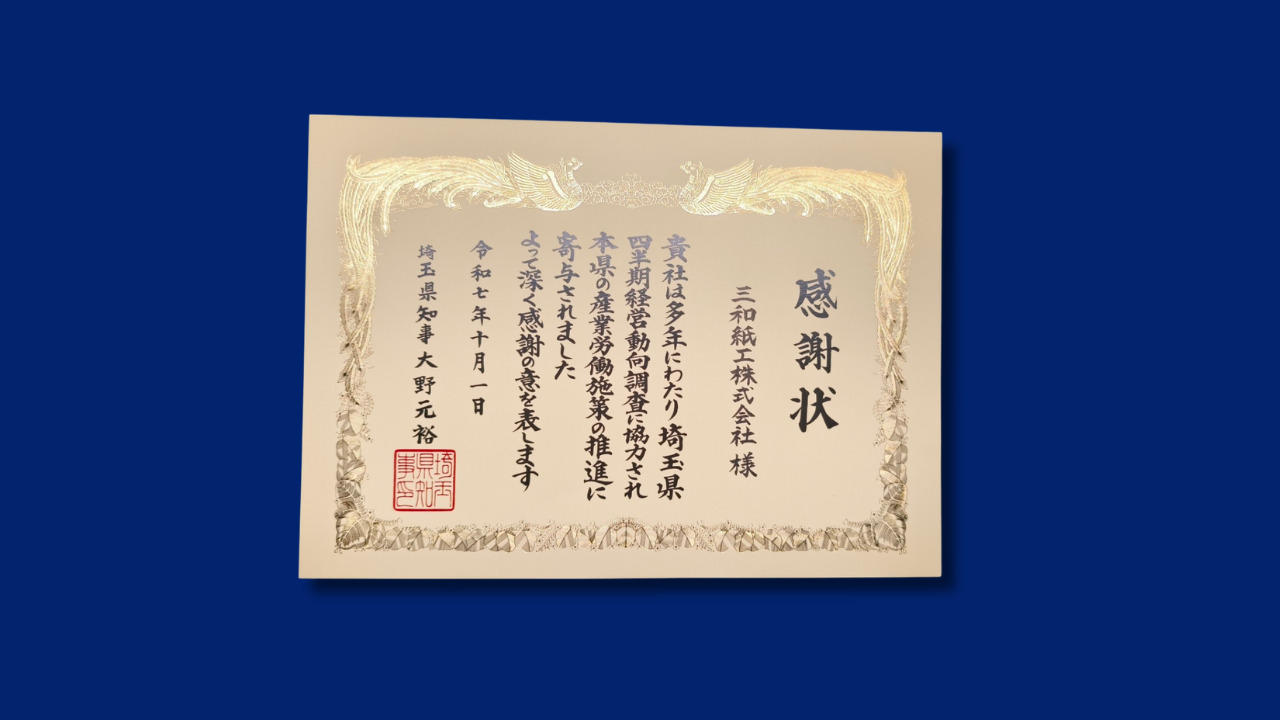 感謝状
三和紙工株式会社 様
貴社は多年にわたり埼玉県
四半期経営動向調査に協力され
本県の産業労働施策の推進に
寄与されました
よって深く感謝の意を表します
令和七年十月一日
埼玉県知事 大野元裕
埼玉
県知
事印